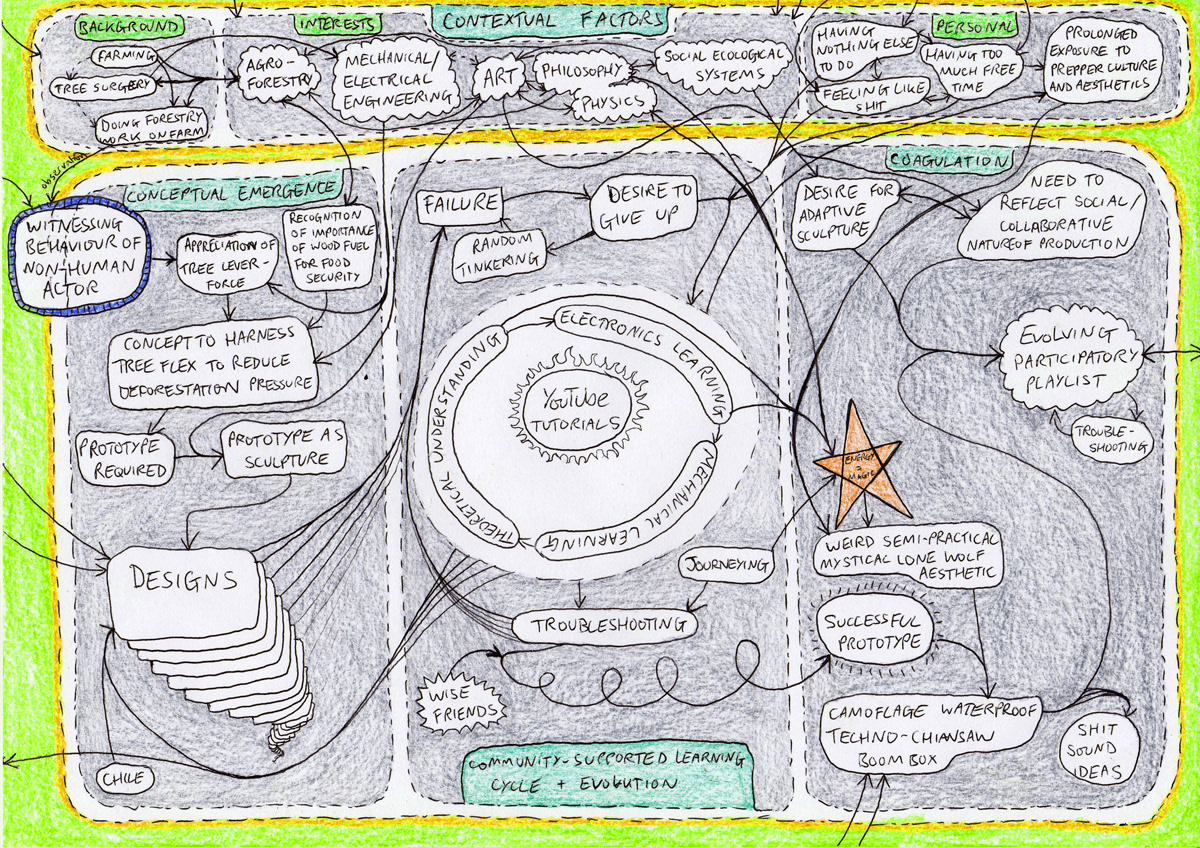 BACKGROUND
INTERESTS
CONTEXTUAL FACTORS
PERSONAL
FARMING
TREE SURGERY
DOING FORESTRY
WORK ON FARM
AGRO-
FORESTRY
MECHANICAL/
ELECTRICAL
ENGINEERING
ART
PHILOSOPHY
PHYSICS
SOCIAL ECOLOGICAL
SYSTEMS
HAVING
NOTHING ELSE
TO DO
FEELING LIKE
SHIT
HAVING TOO
MUCH FREE
TIME
PROLONGED
EXPOSURE TO
PREPPER CULTURE
AND AESTHETICS
observation
CONCEPTUAL EMERGENCE
WITNESSING
BEHAVIOUR OF
NON-HUMAN
ACTOR
APPRECIATION OF
TREE LEVER-
FORCE
RECOGNITION
OF IMPORTANCE
OF WOOD FUEL
FOR FOOD
SECURITY
CONCEPT TO HARNESS
TREE FLEX TO REDUCE
DEFORESTATION PRESSURE
PROTOTYPE
REQUIRED
PROTOTYPE AS
SCULPTURE
DESIGNS
CHILE
FAILURE
RANDOM
TINKERING
DESIRE TO
GIVE UP
ELECTRONICS LEARNING
MECHANICAL LEARNING
THEORETICAL UNDERSTANDING
YOUTUBE
TUTORIALS
JOURNEYING
TROUBLESHOOTING
WISE
FRIENDS
COMMUNITY-SUPPORTED LEARNING
CYCLE + EVOLUTION
COAGULATION
DESIRE FOR
ADAPTIVE
SCULPTURE
NEED TO
REFLECT SOCIAL/
COLLABORATIVE
NATURE OF PRODUCTION
EVOLVING
PARTICIPATORY
PLAYLIST
TROUBLE-
SHOOTING
ENERGY
=
MAGIC
WEIRD SEMI-PRACTICAL
MYSTICAL LONE WOLF
AESTHETIC
SUCCESSFUL
PROTOTYPE
CAMOFLAGE WATERPROOF
TECHNO-CHIANSAW
BOOM BOX
SHIT
SOUND
IDEAS